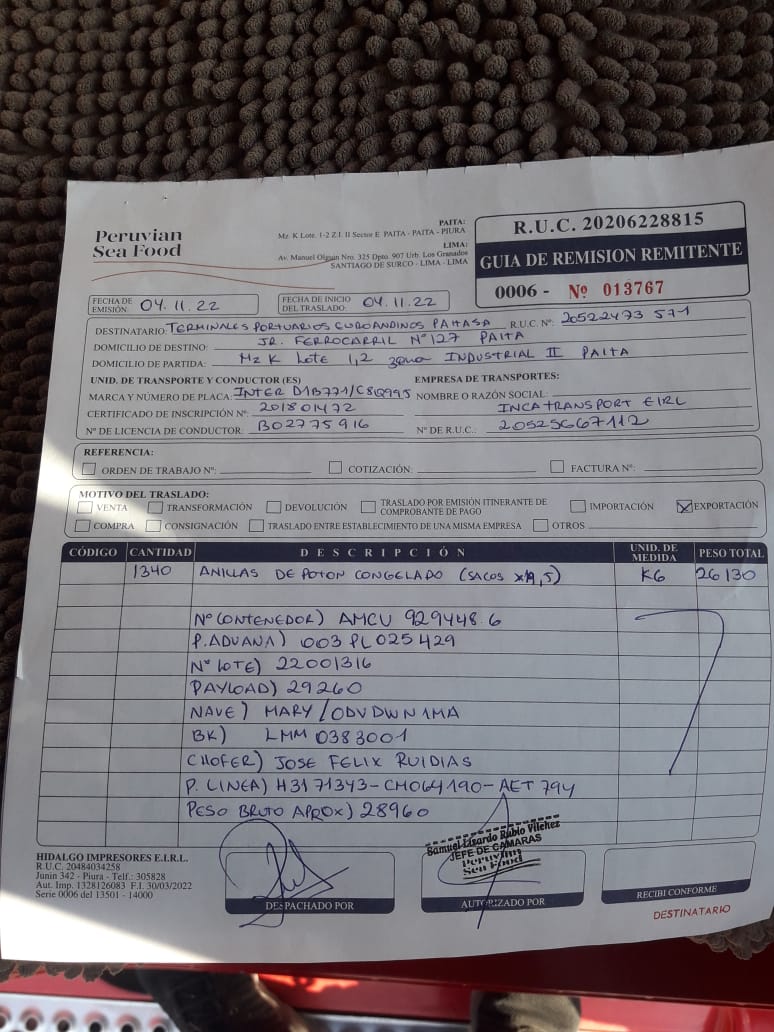 Peruvian
Sea Food
PAITA:
Mz. K Lote. 1-2 Z.I. II Sector E PAITA - PAITA - PIURA
LIMA:
Av. Manuel Olguin Nro. 325 Dpto. 907 Urb. Los Granados
SANTIAGO DE SURCO - LIMA - LIMA
R.U.C. 20206228815
GUIA DE REMISION REMITENTE
0006 - Nº 013767
FECHA DE EMISIÓN: 04.11.22 FECHA DE INICIO DEL TRASLADO: 04.11.22
DESTINATARIO: TERMINALES PORTUARIOS EUROANDINOS PAITA SA R.U.C. Nº: 20522473571
DOMICILIO DE DESTINO: JR. FERROCARRIL Nº 127 PAITA
DOMICILIO DE PARTIDA: Mz K Lote 1,2 zona INDUSTRIAL II PAITA
UNID. DE TRANSPORTE Y CONDUCTOR (ES) EMPRESA DE TRANSPORTES:
MARCA Y NÚMERO DE PLACA: INTER D1B771/C8Q995 NOMBRE O RAZÓN SOCIAL:
CERTIFICADO DE INSCRIPCIÓN Nº: 201801472 INCA TRANSPORT EIRL
Nº DE LICENCIA DE CONDUCTOR: B02775916 Nº DE R.U.C.: 20525667112
REFERENCIA:
ORDEN DE TRABAJO Nº: COTIZACIÓN: FACTURA Nº:
MOTIVO DEL TRASLADO:
VENTA TRANSFORMACIÓN DEVOLUCIÓN TRASLADO POR EMISIÓN ITINERANTE DE COMPROBANTE DE PAGO IMPORTACIÓN EXPORTACIÓN
COMPRA CONSIGNACIÓN TRASLADO ENTRE ESTABLECIMIENTO DE UNA MISMA EMPRESA OTROS
CÓDIGO CANTIDAD DESCRIPCIÓN UNID. DE MEDIDA PESO TOTAL
1340 ANILLAS DE POTON CONGELADO (SACOS x19,5) KG 26130
Nº CONTENEDOR) AMCU 929448.6
P. ADUANA) 003 PL025429
Nº LOTE) 22001316
PAYLOAD) 29260
NAVE) MARY /ODVDWN1MA
BK) LMM0383001
CHOFER) JOSE FELIX RUIDIAS
P. LINEA) H3171343-CM064190-AET794
PESO BRUTO APROX) 28960
HIDALGO IMPRESORES E.I.R.L.
R.U.C. 20484034258
Junin 342 - Piura - Telf.: 305828
Aut. Imp. 1328126083 F.I. 30/03/2022
Serie 0006 del 13501 - 14000
DESPACHADO POR
Samuel Lisardo Rubio Vilchez
JEFE DE CAMARAS
Peruvian
Sea Food
AUTORIZADO POR
RECIBI CONFORME
DESTINATARIO